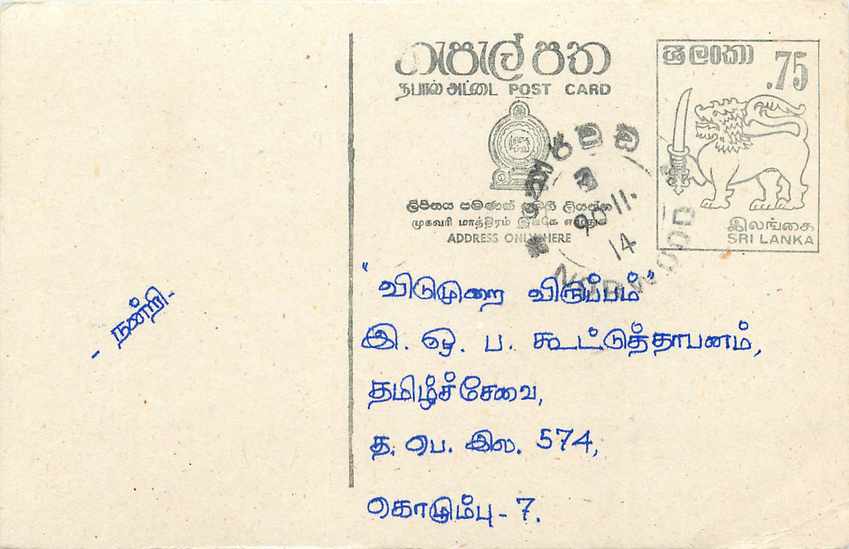 - நன்றி -
තැපැල් පත
தபால் அட்டை POST CARD
ලිපිනය පමණක්
முகவரி மாத்திரம் இங்கே
ADDRESS ONLY HERE
ශ්‍රී ලංකා
.75
இலங்கை
SRI LANKA
90.11.
14
NORWOOD
"விடுமுறை விருப்பம்"
இ. ஒ. ப. கூட்டுத்தாபனம்,
தமிழ்ச்சேவை,
த. பெ. இல. 574,
கொழும்பு - 7.